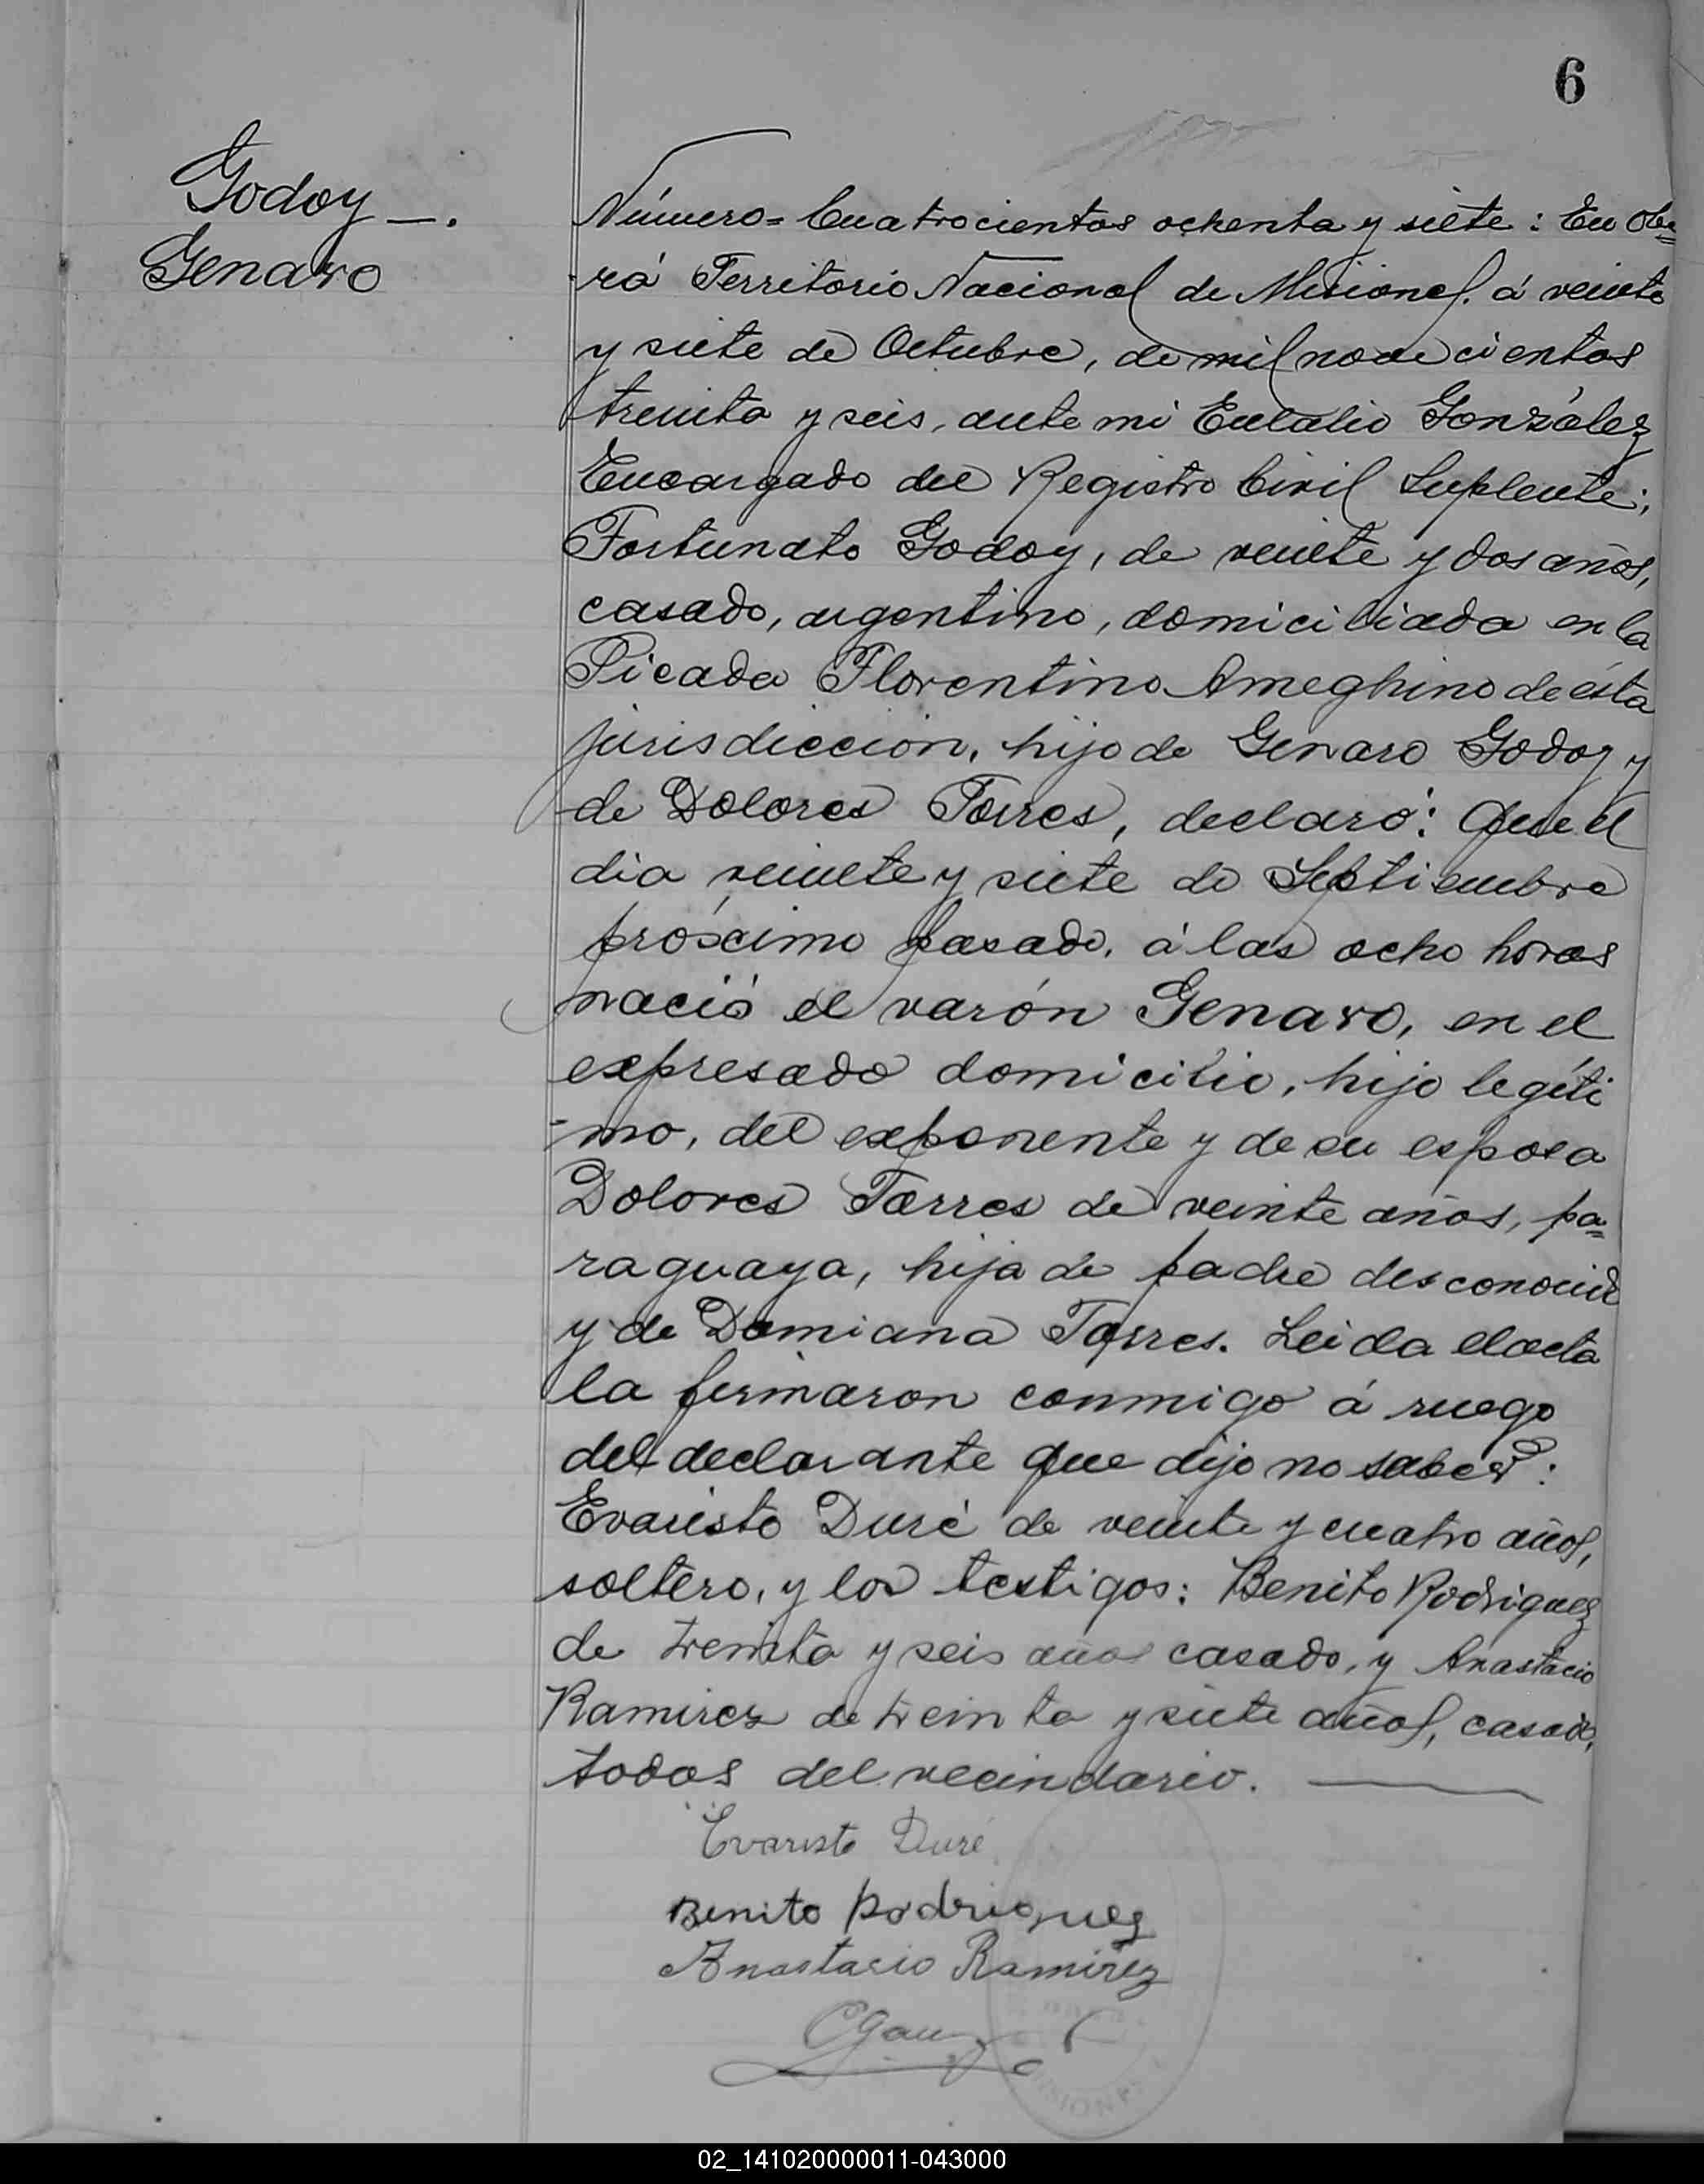 6
Godoy —.
Genaro
Número= Cuatrocientos ochenta y siete: En Obe=
-rá Territorio Nacional de Misiones. á veinte
y siete de Octubre, de mil novecientos
treinta y seis, ante mi Eulalio González
Encargado del Registro Civil Suplente;
Fortunato Godoy, de veinte y dos años,
casado, argentino, domiciliada en la
Picada Florentino Ameghino de ésta
jurisdiccion, hijo de Genaro Godoy y
de Dolores Torres, declaró: Que el
dia veinte y siete de Septiembre
próximo pasado, á las ocho horas
nació el varón Genaro, en el
expresado domicilio, hijo legíti
-mo, del exponente y de su esposa
Dolores Torres de veinte años, pa=
raguaya, hija de padre desconocido
y de Damiana Torres. Leida el acta
la firmaron conmigo á ruego
del declarante que dijo no saber:
Evaristo Duré de veinte y cuatro años,
soltero, y los testigos: Benito Rodriguez
de treinta y seis años casado, y Anastacio
Ramirez de treinta y siete años, casado,
todos del vecindario. —
Evaristo Duré
Benito Rodriguez
Anastacio Ramirez
02_141020000011-043000